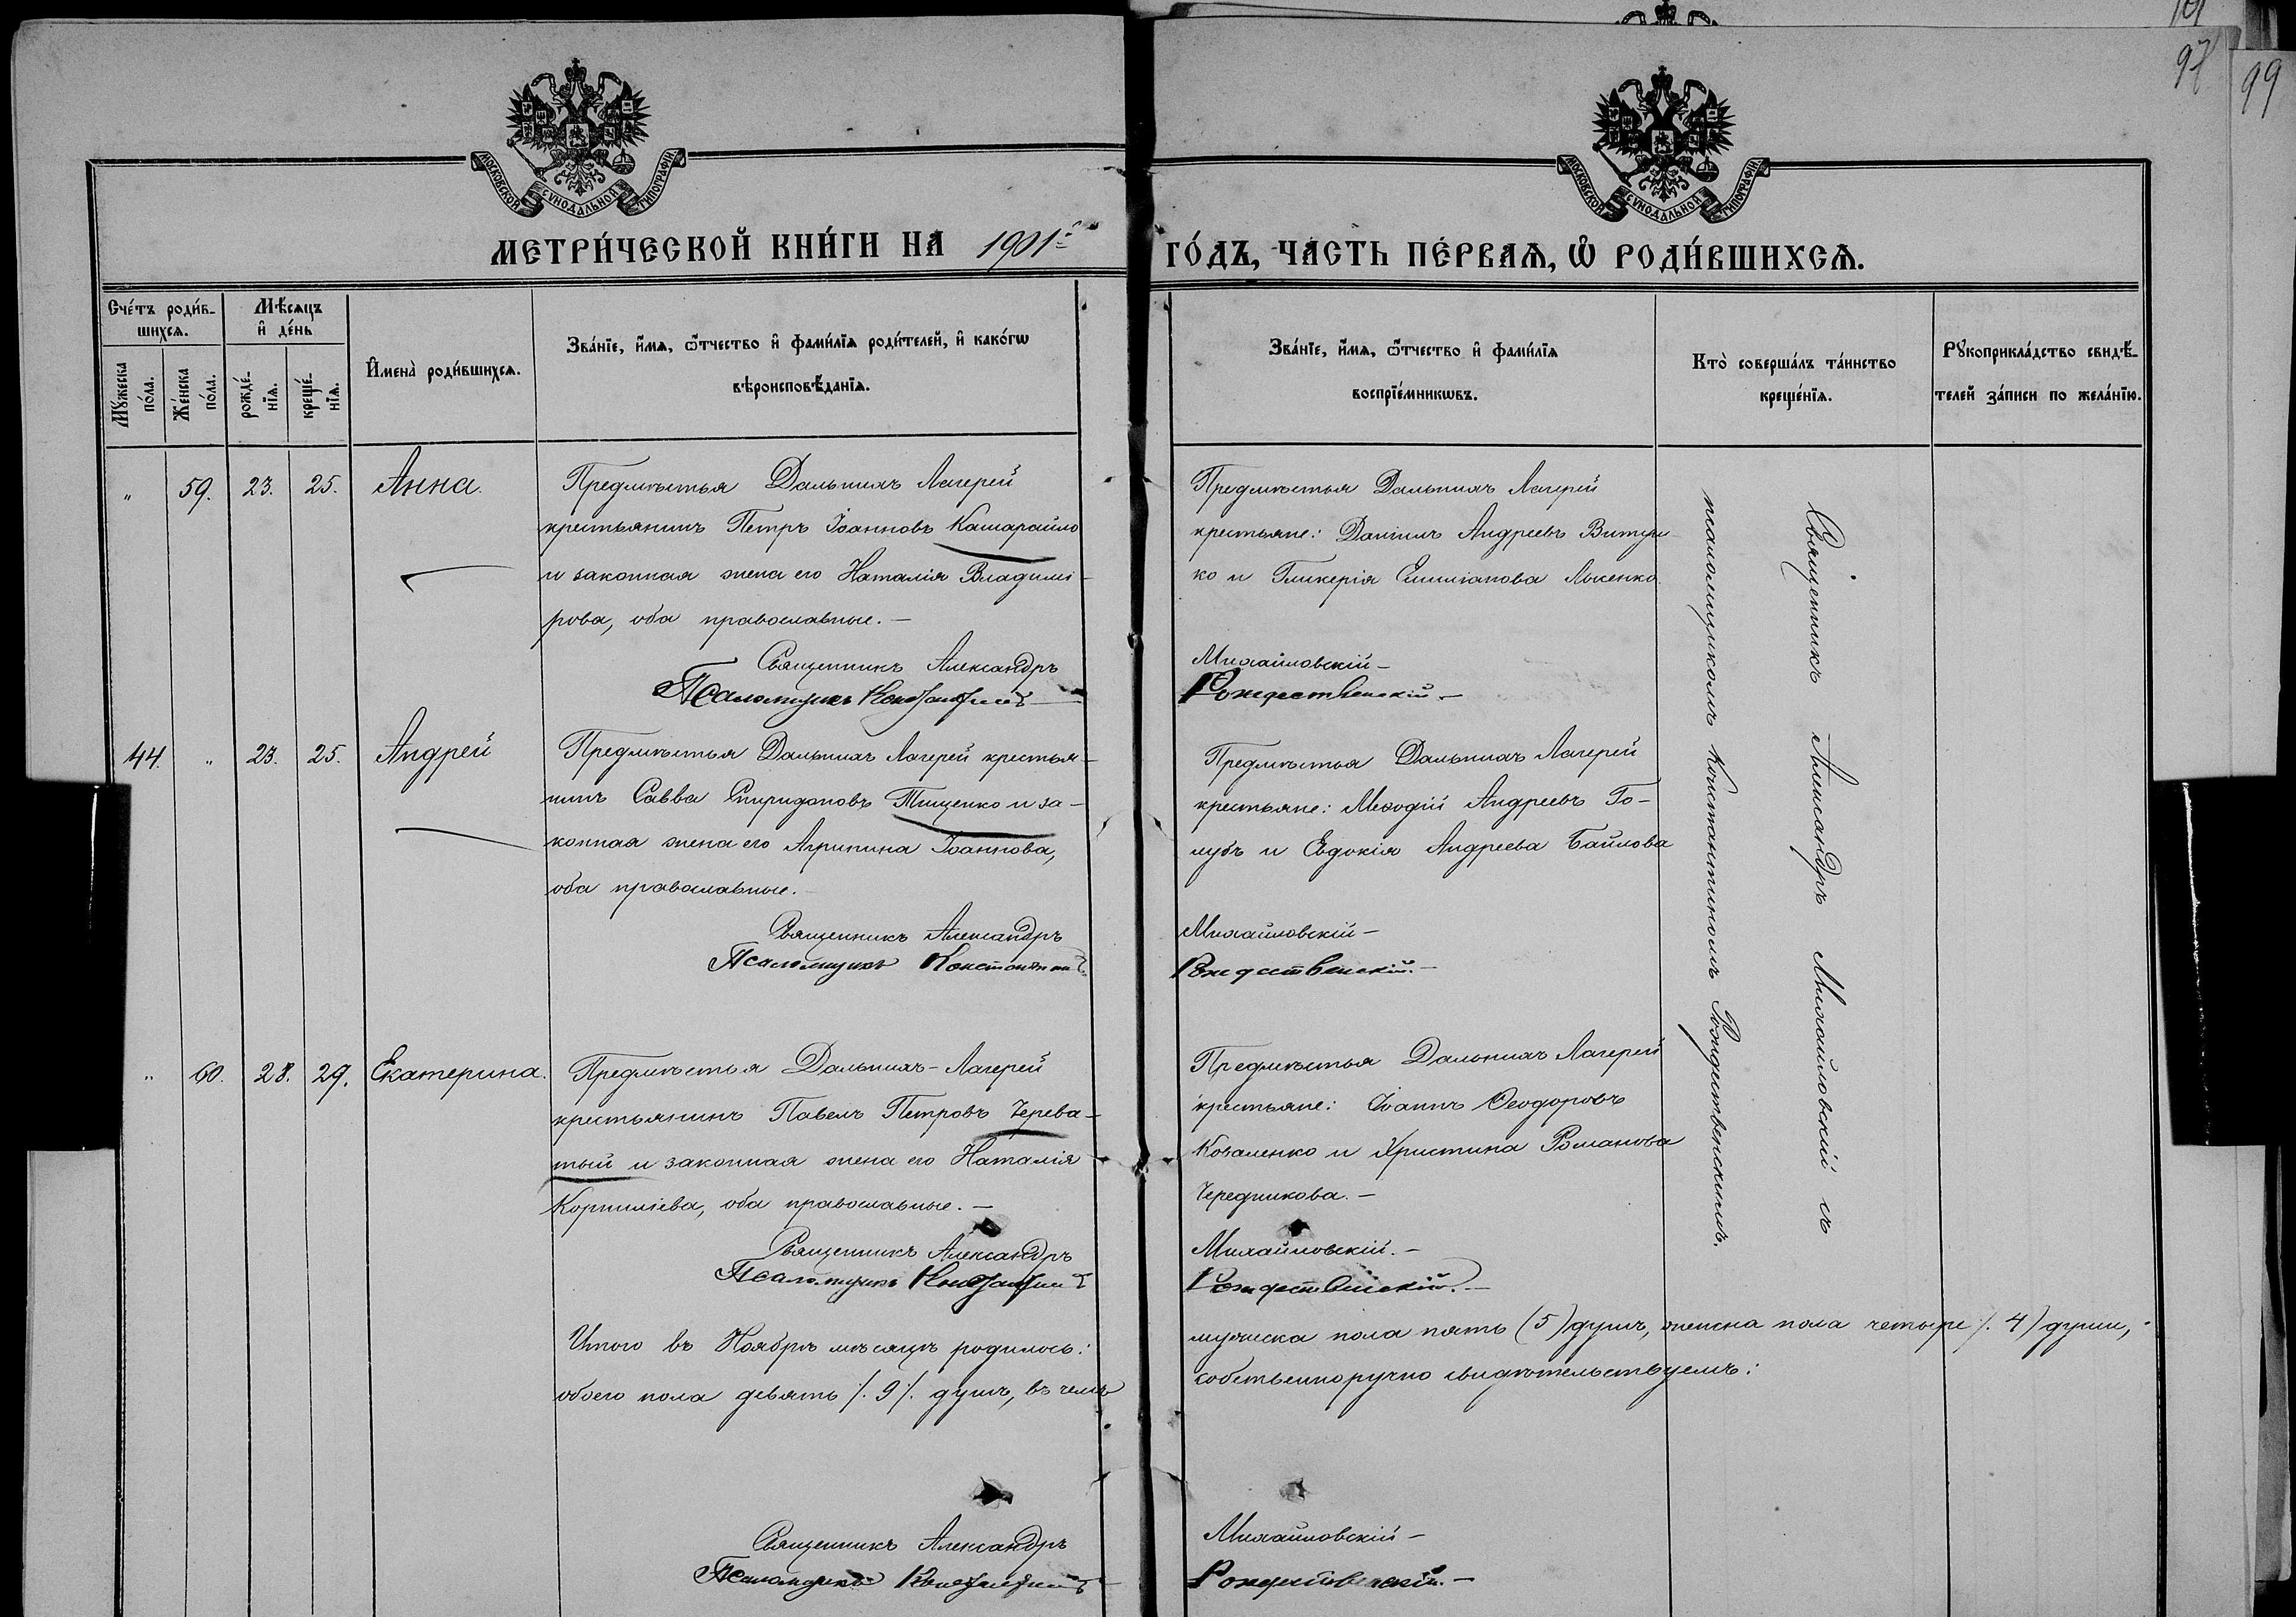 99
97
МОСКОВСКОЙ СѴНОДАЛЬНОЙ ТИПОГРАФІИ.
МОСКОВСКОЙ СѴНОДАЛЬНОЙ ТИПОГРАФІИ.
МЕТРИ́ЧЕСКОЙ КНИ́ГИ НА 1901й ГО́ДЪ, ЧА́СТЬ ПЕ́РВАѦ, Ѽ РОДИ́ВШИХСѦ.
Сче́тъ роди́в-
шихсѧ.
Мꙋ́жеска по́ла.
Же́нска по́ла.
Мѣ́сѧцъ
и҆ де́нь
рожде́-
нїѧ.
креще́-
нїѧ.
И҆мена̀ роди́вшихсѧ.
Зва́нїе, и҆́мѧ, ѻ҆́тчество и҆ фами́лїѧ роди́телей, и҆ како́гѡ
вѣроисповѣ́данїѧ.
Зва́нїе, и҆́мѧ, ѻ҆́тчество и҆ фами́лїѧ
воспрїе́мникѡвъ.
Кто̀ соверша́лъ та́инство
креще́нїѧ.
Рꙋкоприкла́дство свидѣ́-
телей за́писи по жела́нїю.
" 59. 23. 25. Анна.
Предмѣстья Дальнихъ Лагерей
крестьянинъ Петръ Іоанновъ Кашарайло
и законная жена его Наталія Владимі-
рова, оба православные. —
Священникъ Александръ Михайловскій —
Псаломщикъ Константинъ Рождественскій —
Предмѣстья Дальнихъ Лагерей
крестьяне: Даніилъ Андреевъ Витри-
ко и Гликерія Емиліанова Лысенко.
Священникъ Александръ Михайловскій съ
псаломщикомъ Константиномъ Рождественскимъ.
44. " 23. 25. Андрей
Предмѣстья Дальнихъ Лагерей крестья-
нинъ Савва Спиридоновъ Тищенко и за-
конная жена его Агрипина Іоаннова,
оба православные.
Священникъ Александръ Михайловскій —
Псаломщикъ Константинъ Рождественскій. —
Предмѣстья Дальнихъ Лагерей
крестьяне: Меѳодій Андреевъ Го-
лубъ и Евдокія Андреева Байлова
" 60. 28. 29. Екатерина.
Предмѣстья Дальнихъ-Лагерей
крестьянинъ Павелъ Петровъ Черева-
тый и законная жена его Наталія
Корниліева, оба православные. —
Священникъ Александръ Михайловскій. —
Псаломщикъ Константинъ Рождественскій. —
Предмѣстья Дальнихъ Лагерей
крестьяне: Іоаннъ Ѳеодоровъ
Коваленко и Христина Романова
Чередникова. —
Итого въ Ноябрѣ мѣсяцѣ родилось: мужеска пола пять (5) душъ, женска пола четыре /. 4) души,
обоего пола девять /. 9 /. душъ, въ чемъ собственноручно свидѣтельствуемъ:
Священникъ Александръ Михайловскій —
Псаломщикъ Константинъ Рождественскій. —